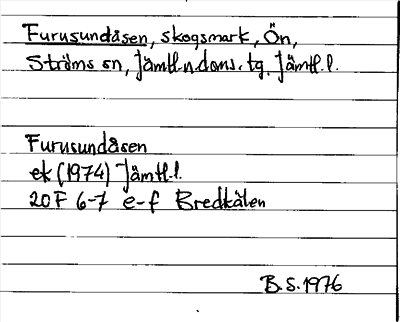 Furusundåsen, skogsmark, Ön,
Ströms sn, Jämtl.n.doms.tg. Jämtl.l.
Furusundåsen
ek (1974) Jämtl.l.
20F 6-7 e-f Bredkälen
B.S. 1976